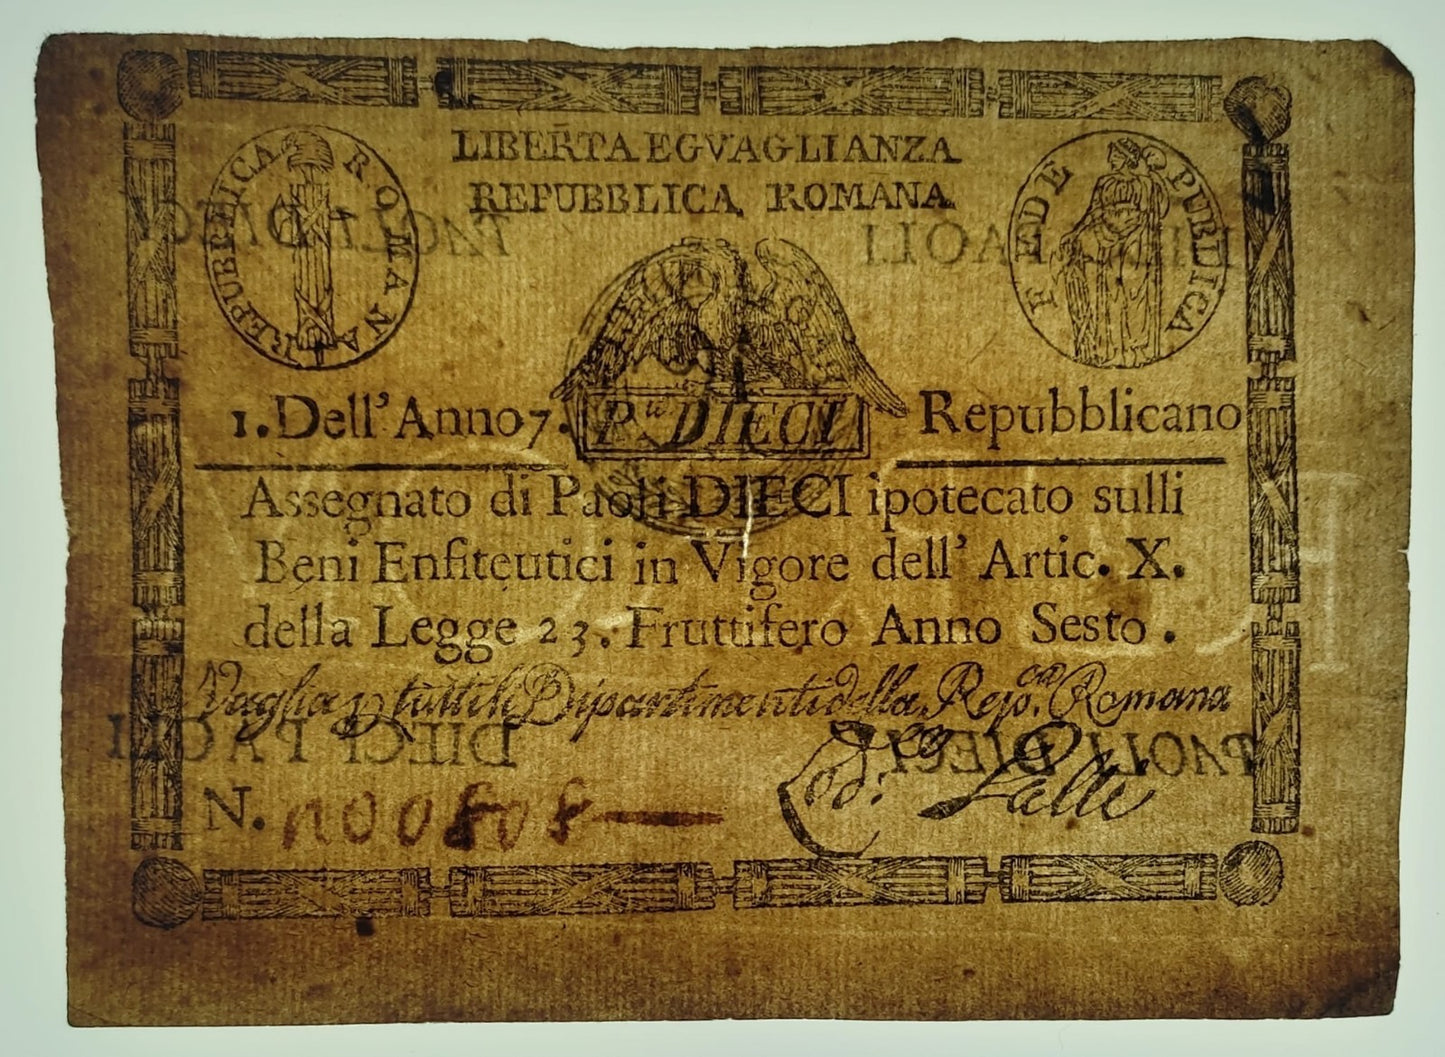 LIBERTA EGVAGLIANZA
REPUBBLICA ROMANA
REPUBBLICA ROMANA
FEDE PUBLICA
1. Dell' Anno 7. Repubblicano
P.li DIECI
Assegnato di Paoli DIECI ipotecato sulli
Beni Enfiteutici in Vigore dell' Artic. X.
della Legge 23. Fruttifero Anno Sesto.
Vaglia p tutti li Dipartimenti della Rep.ca Romana
PAOLI DIECI
DIECI PAOLI
DIECI PAOLI
PAOLI DIECI
N. n00808